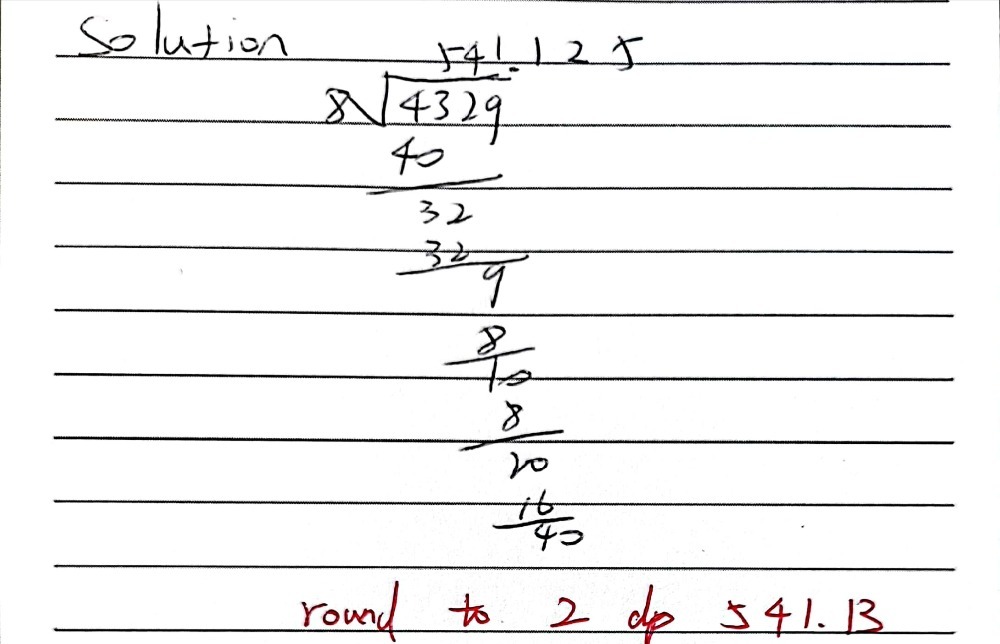 Solution
541.125
8√4329
40
32
32
9
8
10
8
20
16
40
round to 2 dp 541.13